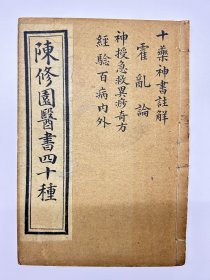 十藥神書註解
霍亂論
神授急救異痧奇方
經驗百病內外
陳修園醫書四十種